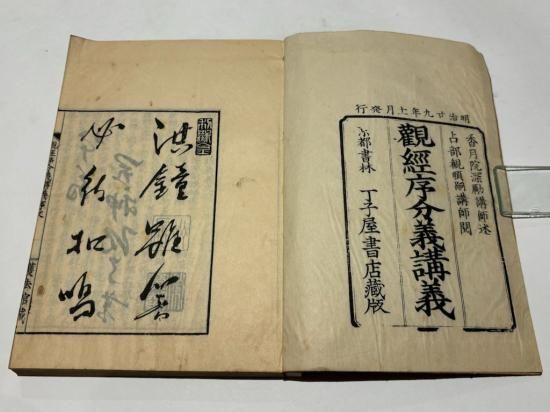 明治廿九年上月發行
香月院深勵講師述
占部觀順嗣講師閲
觀經序分義講義
京都書林 丁子屋書店藏版
洪鐘雖響
必待扣鳴